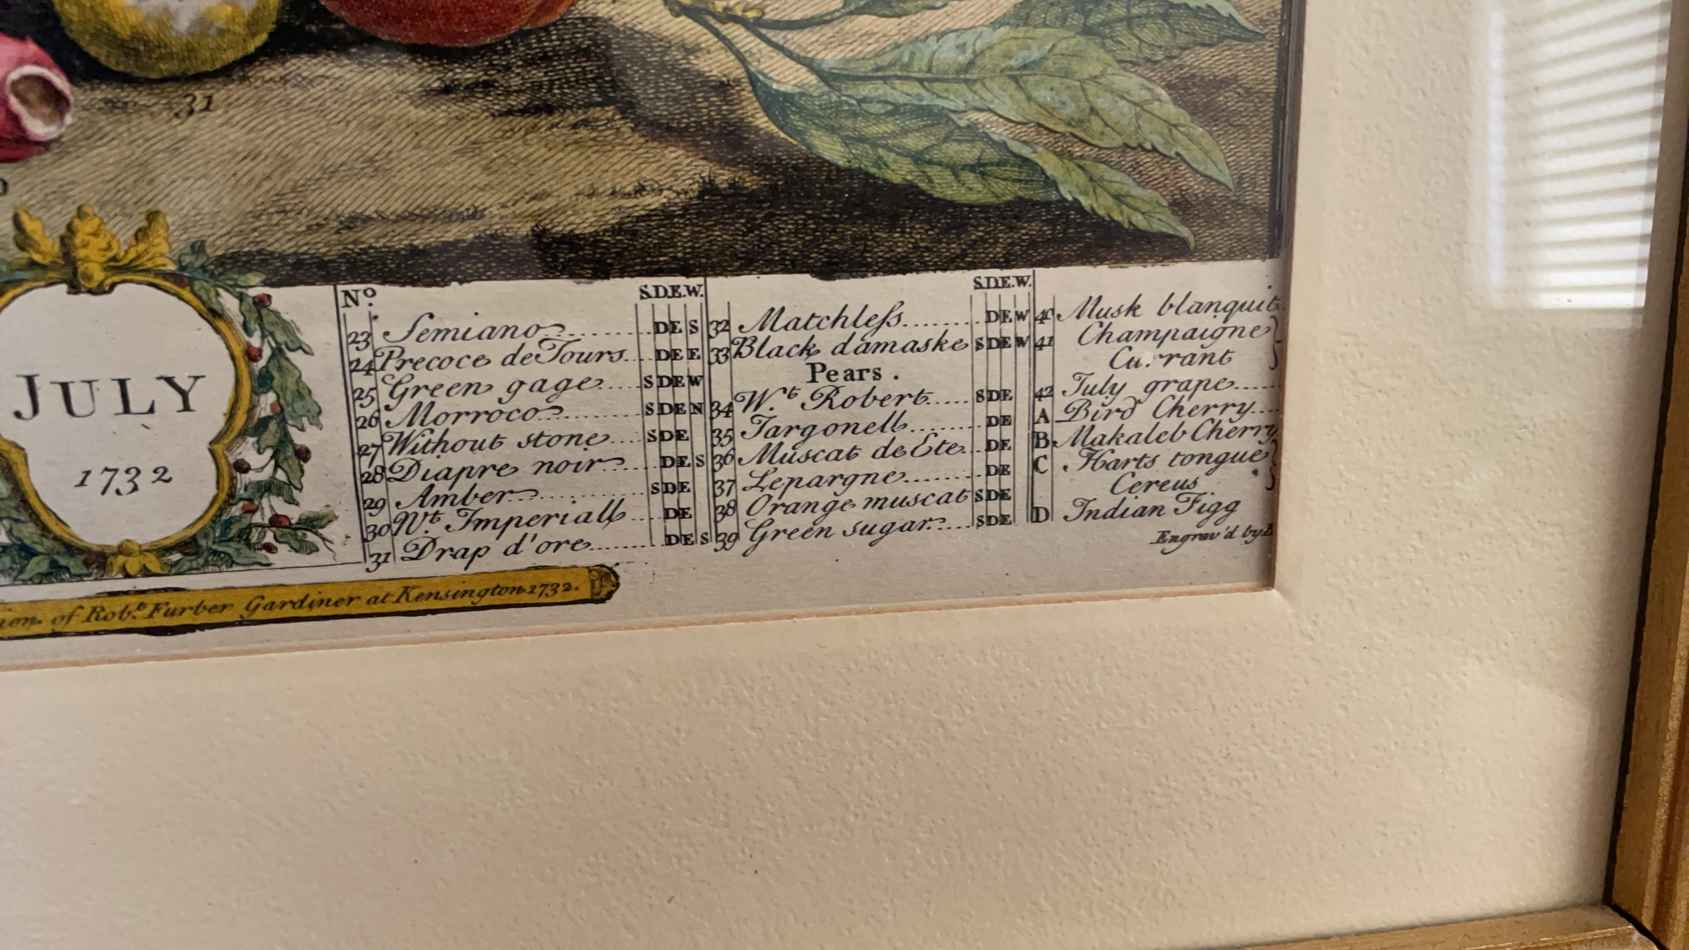 31
JULY
1732
of Rob.t Furber Gardiner at Kensington 1732.
No. S.D.E.W.
23 Semiano DE S
24 Precoce de Tours DE E
25 Green gage S DE W
26 Morroco S DE N
27 Without stone S DE
28 Diapre noir DE S
29 Amber S DE
30 W.t Imperiall DE
31 Drap d'ore DE S
S.D.E.W.
32 Matchleſs DE W
33 Black damaske S DE W
Pears.
34 W.t Robert S DE
35 Jargonell DE
36 Muscat de Ete DE
37 Lepargne DE
38 Orange muscat S DE
39 Green sugar S DE
40 Musk blanquit
41 Champaigne
Currant
42 July grape
A Bird Cherry
B Makaleb Cherry
C Harts tongue
Cereus
D Indian Figg
Engrav'd by